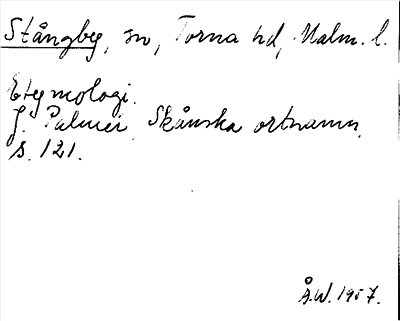 Stångby, sn, Torna hd, Malm. l.
Etymologi.
J. Palmér, Skånska ortnamn,
s. 121.
Å.W. 1957.